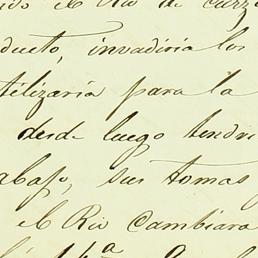 el Rio de
ducto, invadiria los
tilizaria para la
desde luego tendr
abajo, sus tomas
el Rio Cambiara